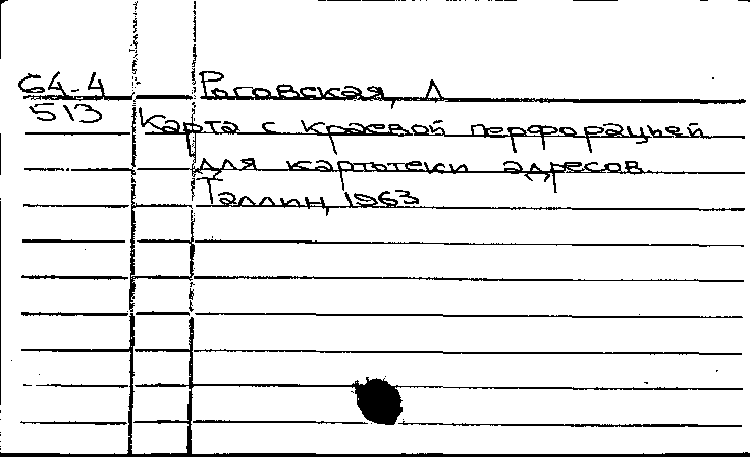 64-4 Роговская, Л
513 Карта с краевой перфорацьей
для картотеки адресов
Таллин, 1963